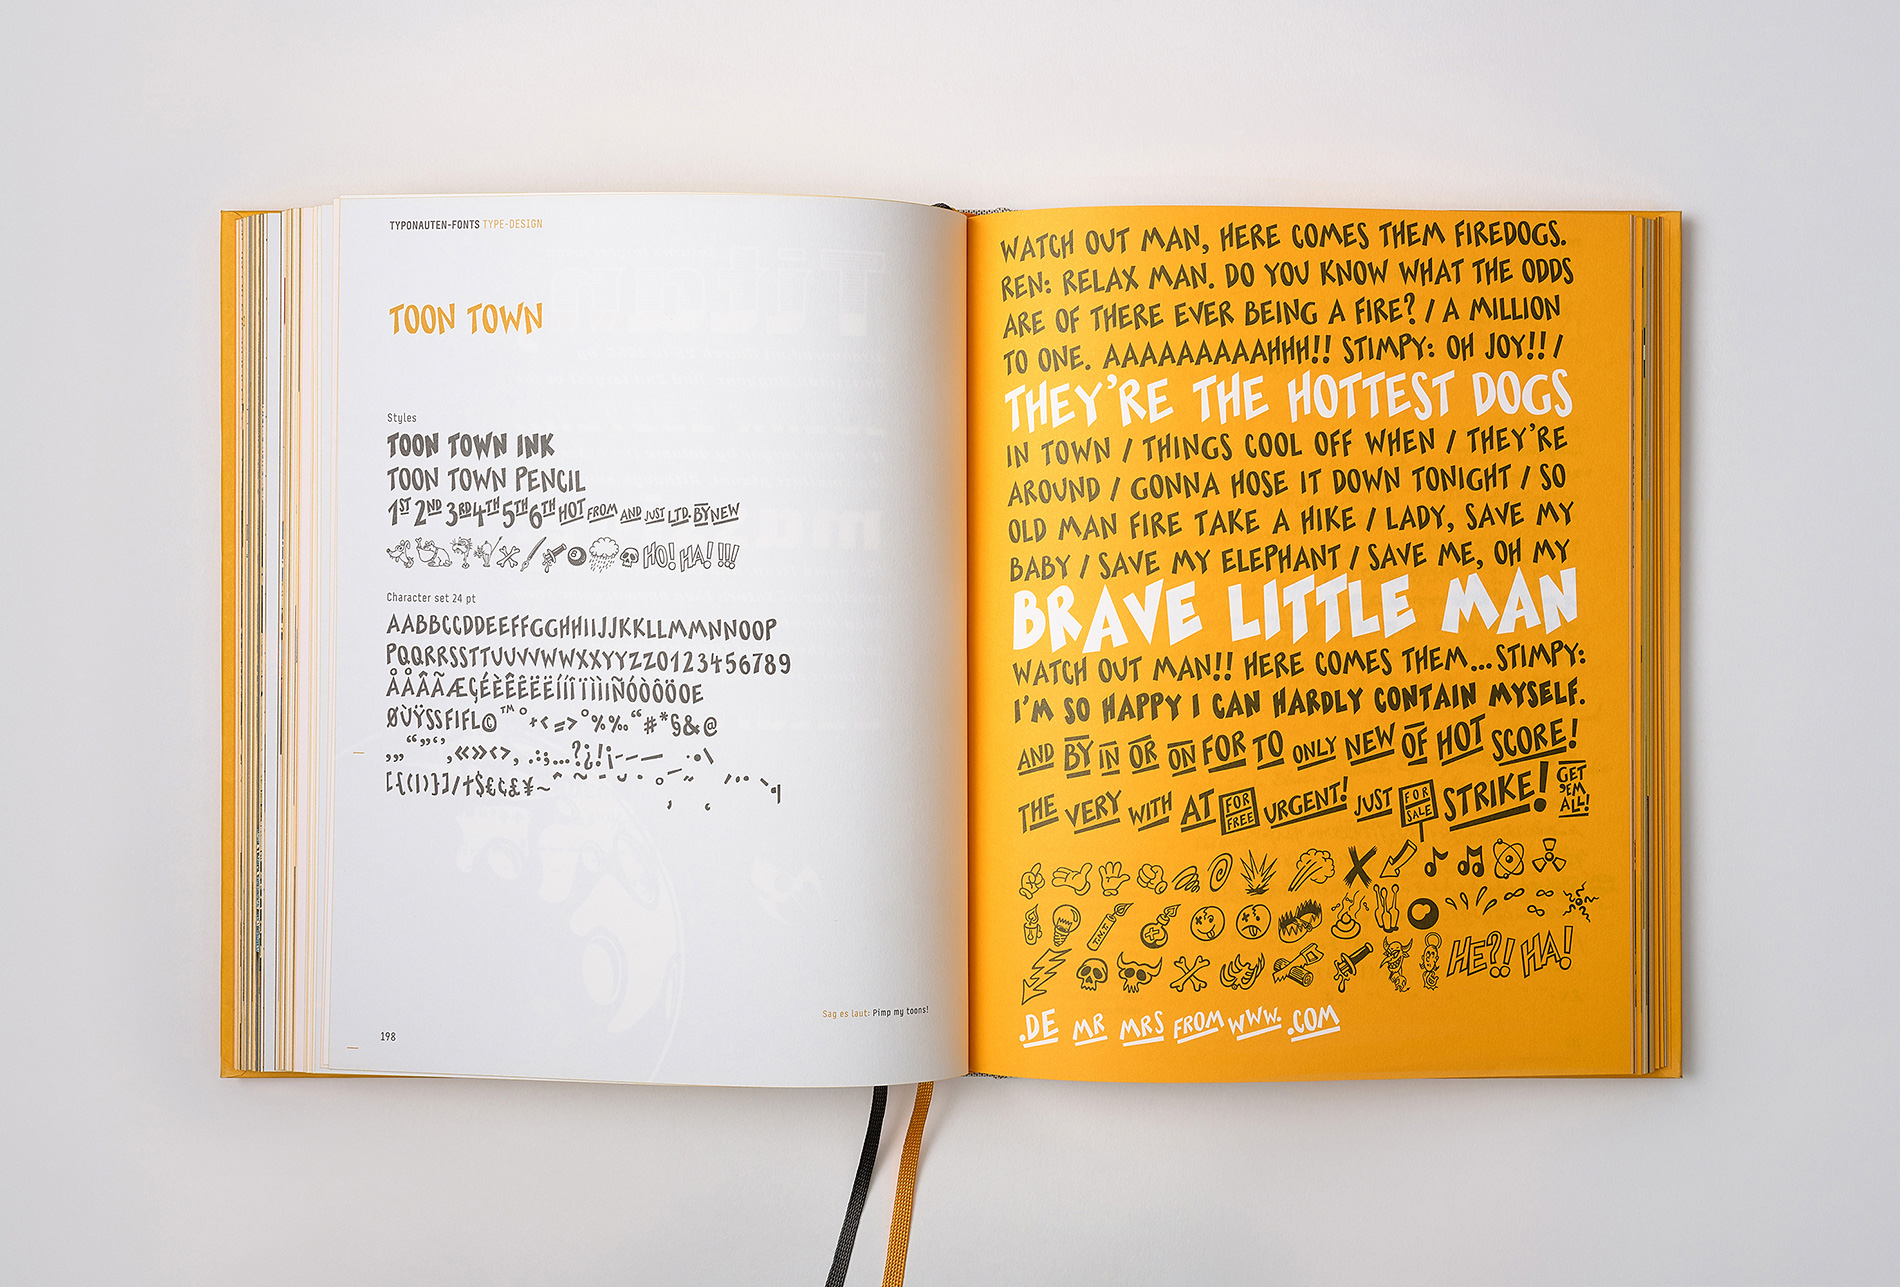 TYPONAUTEN-FONTS TYPE-DESIGN
TOON TOWN
Styles
TOON TOWN INK
TOON TOWN PENCIL
1ST 2ND 3RD 4TH 5TH 6TH HOT FROM AND JUST LTD. BY NEW
HO! HA! !!!
Character set 24 pt
AABBCCDDEEFFGGHHIIJJKKLLMMNNOOP
PQQRRSSTTUUVVWWXXYYZZ0123456789
ÅÀÂÃÆÇÉÈÊËËÍÎÏÌÑÓÒÔÖOE
ØÙŸSSFIFL©™°+<=>°%‰“#*§&@
[{(|)}]/†$€¢£¥~
Sag es laut: Pimp my toons!
198
WATCH OUT MAN, HERE COMES THEM FIREDOGS.
REN: RELAX MAN. DO YOU KNOW WHAT THE ODDS
ARE OF THERE EVER BEING A FIRE? / A MILLION
TO ONE. AAAAAAAAAAHHH!! STIMPY: OH JOY!! /
THEY'RE THE HOTTEST DOGS
IN TOWN / THINGS COOL OFF WHEN / THEY'RE
AROUND / GONNA HOSE IT DOWN TONIGHT / SO
OLD MAN FIRE TAKE A HIKE / LADY, SAVE MY
BABY / SAVE MY ELEPHANT / SAVE ME, OH MY
BRAVE LITTLE MAN
WATCH OUT MAN!! HERE COMES THEM...STIMPY:
I'M SO HAPPY I CAN HARDLY CONTAIN MYSELF.
AND BY IN OR ON FOR TO ONLY NEW OF HOT SCORE!
THE VERY WITH AT FOR FREE URGENT! JUST FOR SALE STRIKE! GET 'EM ALL!
T.N.T.
HE?! HA!
.DE MR MRS FROM WWW. .COM